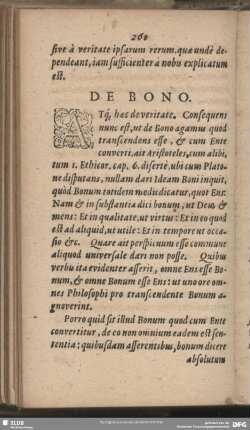 260
sive à veritate ipsarum rerum, quæ undè de-
pendeant, iam sufficienter a nobis explicatum
est.
DE BONO.
ATq, hæc de veritate. Consequens
nunc est, ut de Bono agamus quod
transcendens esse, & cum Ente
converti, ait Aristoteles, cum alibi,
tum 1. Ethicor. cap. 6. disertè, ubi cum Plato-
ne disputans, nullam dari Ideam Boni inquit,
quòd Bonum totidem modis dicatur, quot Ens:
Nam & in substantia dici bonum, ut Deus &
mens: Et in qualitate, ut virtus: Et in eo quod
est ad aliquid, ut utile: Et in tempore ut occa-
sio &c. Quare ait perspicuum esse commune
aliquod universale dari non posse. Quibus
verbis ita evidenter asserit, omne Ens esse Bo-
num, & omne Bonum esse Ens: ut uno ore om-
nes Philosophi pro transcendente Bonum a-
gnoverint.
Porro quid sit illud Bonum quod cum Ente
convertitur, de eo non omnium eadem est sen-
tentia: quibusdam asserentibus, bonum dicere
absolutum
SLUB
DFG